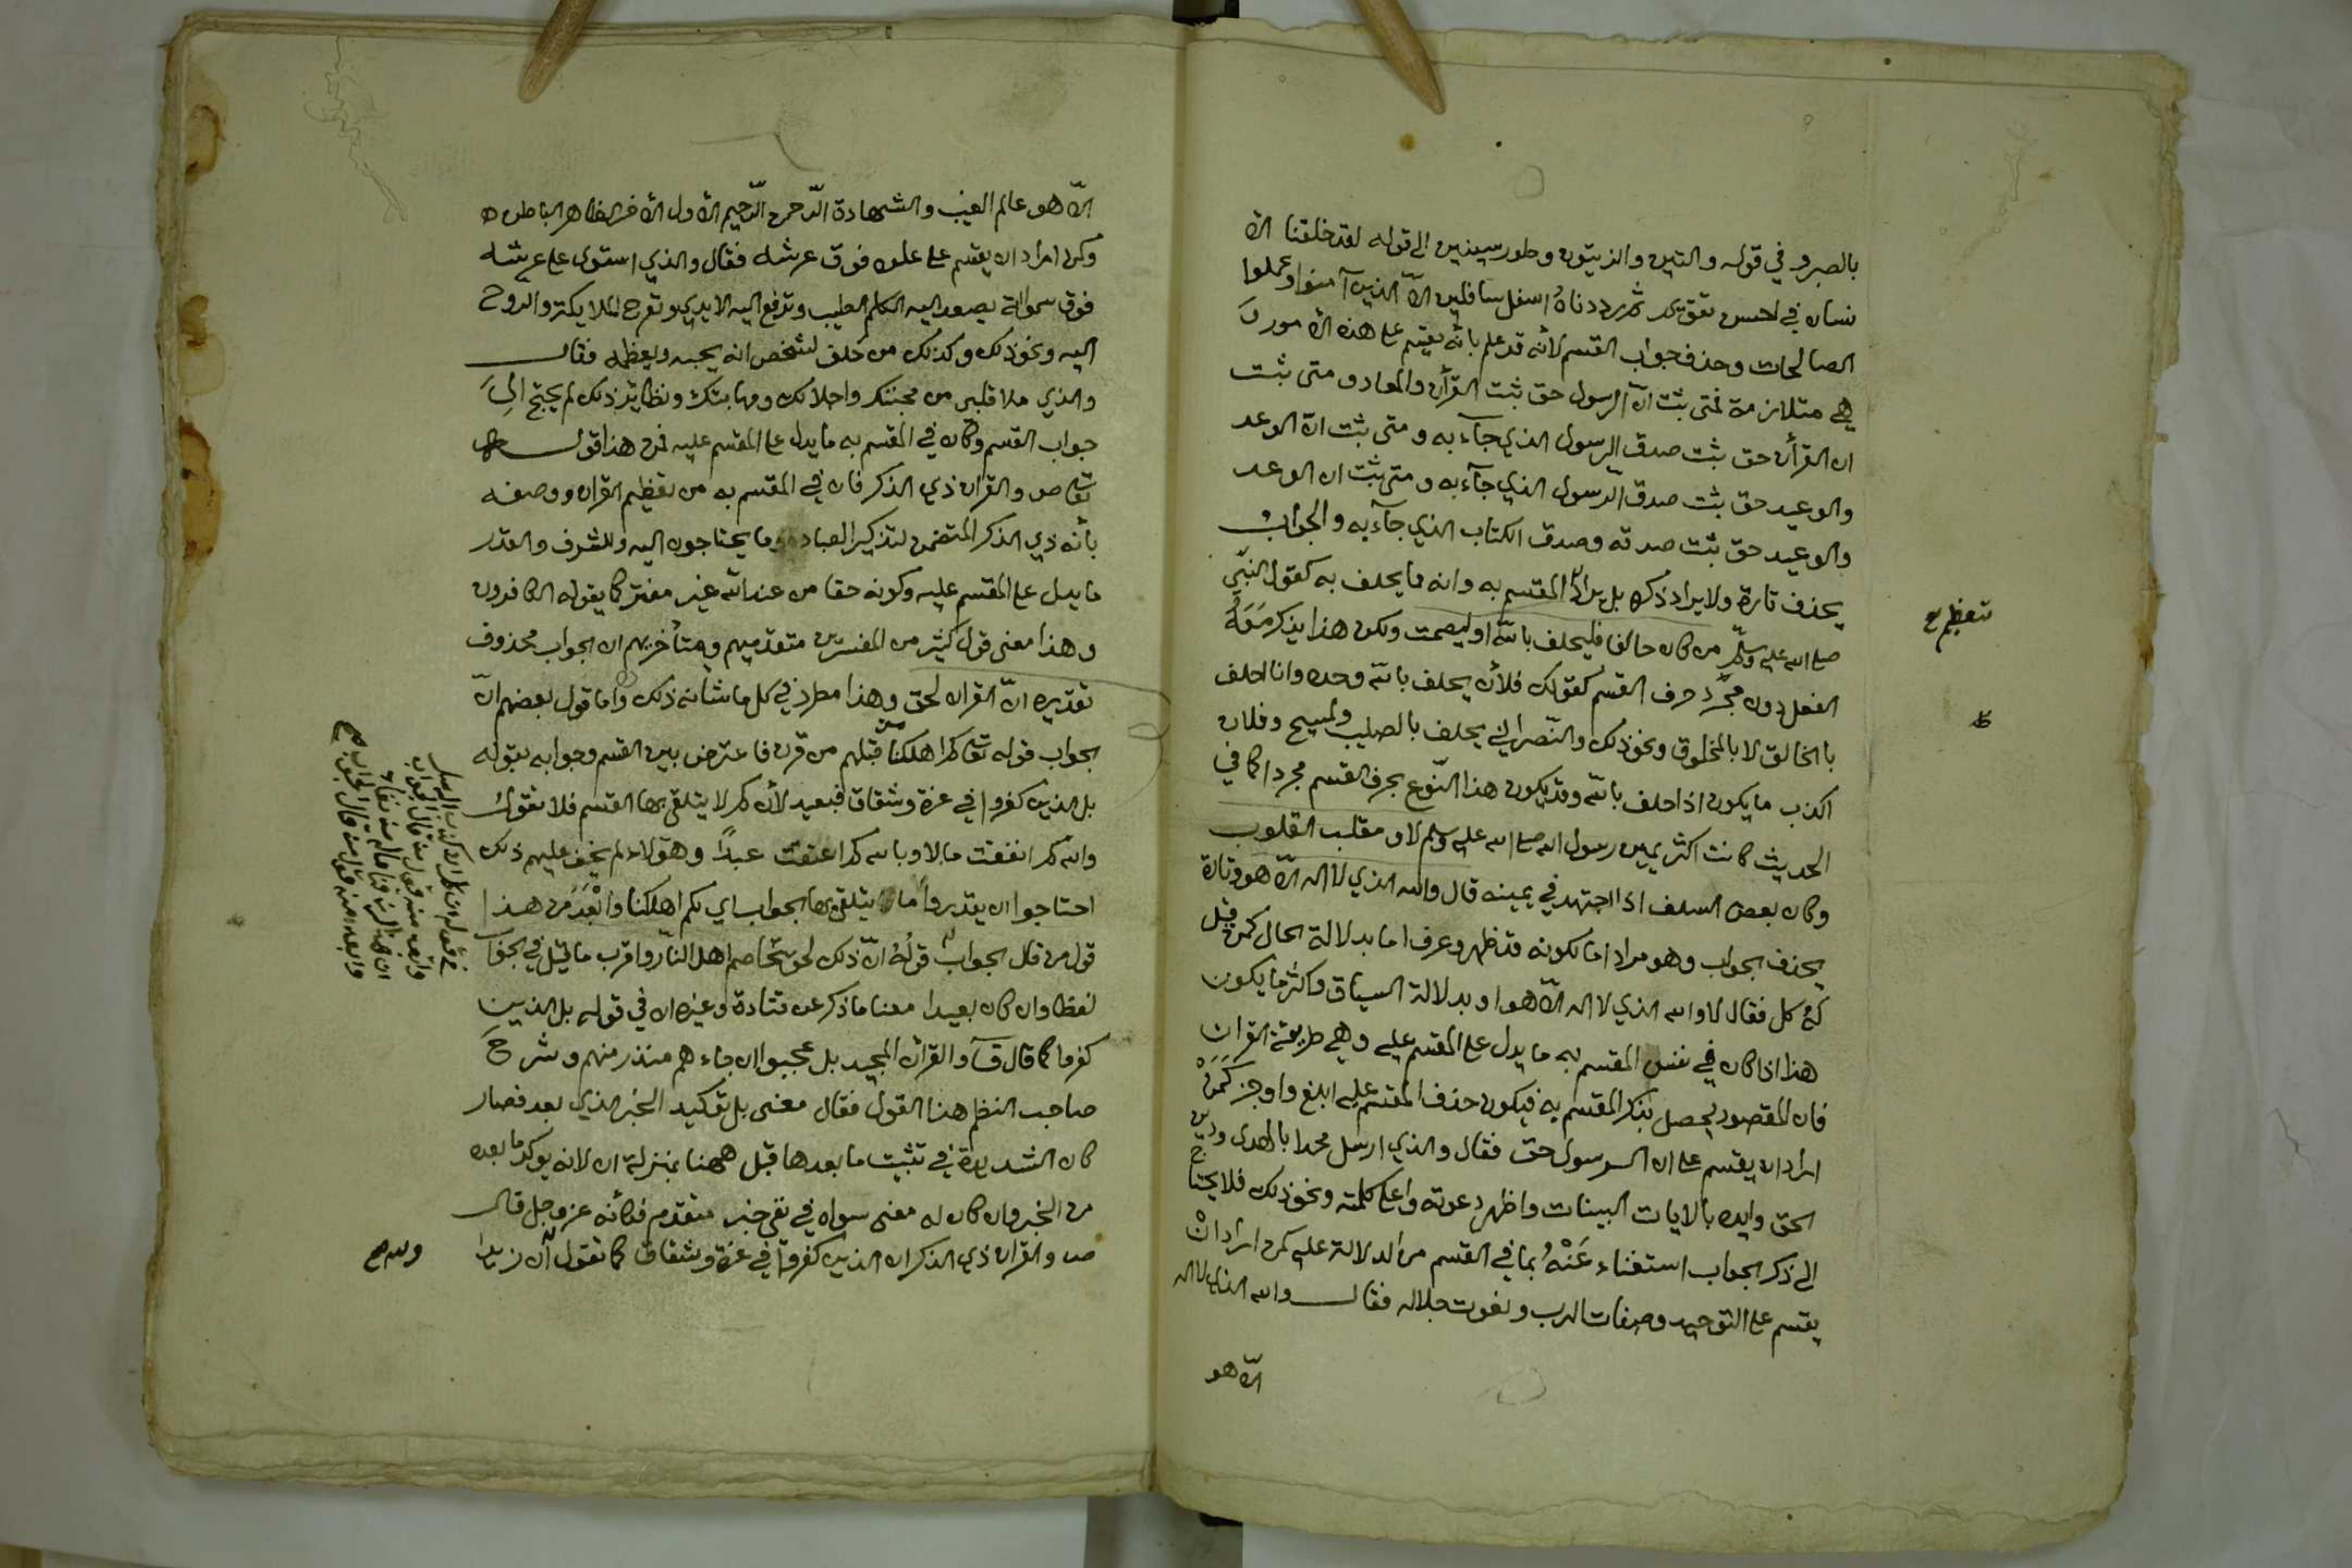 بالصبر و في قوله والتين والزيتون وطور سينين الى قوله لقد خلقنا الا
نسان في احسن تقويم ثم رددناه اسفل سافلين الّا الذين آمنوا وعملوا
الصالحات وحذف جواب القسم لأنه قد علم بأنه يقسم على هذه الامور و
هي متلازمة فمتى ثبت انّ الرسول حق ثبت القرأن والمعاد و متى ثبت
ان القرأن حق ثبت صدق الرسول الذي جآء به و متى ثبت انّ الوعد
والوعيد حق ثبت صدق الرّسول الذي جآء به و متى ثبت ان الوعد
والوعيد حق ثبت صدقه وصدق الكتاب الذي جآء به والجواب
يحذف تارة ولا يراد ذكره بل يراد المقسم به وانه مما يحلف به كقول النبّي
تعظيم
صلى الله عليه وسلّم من كان حالفا فليحلف بالله او ليصمت ولكن هذا يذكر معه
الفعل دون مجرّد حرف القسم كقولك فلان يحلف بالله وحده وانا احلف
بالخالق لا بالمخلوق ونحو ذلك والنّصراني يحلف بالصليب والمسيح وفلان
اكذب ما يكون اذا حلف بالله وقد يكون هذا النّوع بحرف القسم مجردا كما في
الحديث كانت اكثر يمين رسول الله صلى الله عليه وسلم لا و مقلب القلوب
وكان بعض السلف اذا اجتهد في يمينه قال والله الذي لا اله الّا هو وتارة
يحذف الجواب وهو مراد اما لكونه قد ظهر وعرف اما بدلالة الحال كمن قيل
له كل فقال لا والله الذي لا اله الّا هو او بدلالة السياق واكثر ما يكون
هذا اذا كان في نفس المقسم به ما يدل على المقسم عليه وهي طريقة القران
فان المقصود يحصل بذكر المقسم به فيكون حذف المقسم عليه ابلغ واوجز كمن
اراد ان يقسم على ان الرسول حق فقال والذي ارسل محمدا بالهدى ودين
الحق وايده بالايات البينات واظهر دعوته واعلى كلمته ونحو ذلك فلا يحتاج
الى ذكر الجواب استغناء عنه بما في القسم من الدلالة عليه كمن اراد ان
يقسم على التوحيد وصفات الرب ونعوت جلاله فقال والله الذي لا اله
الّا هو
الّا هو عالم الغيب والشهادة الرّحمن الرّحيم الاول الاخر الظاهر الباطن
وكمن اراد ان يقسم على علوه فوق عرشه فقال والذي استوى على عرشه
فوق سمواته يصعد اليه الكلم الطيب وترفع اليه الايدي وتعرج الملايكة والروح
اليه ونحو ذلك وكذلك من حلف لشخص انه يحبه ويعظمه فقال
والذي ملا قلبي من محبتك واجلالك ومهابتك ونظاير ذلك لم يحتج الى
جواب القسم وكان في المقسم به ما يدل على المقسم عليه فمن هذا قوله
تعالى ص والقران ذي الذكر فان في المقسم به من تعظيم القران ووصفه
بأنه ذي الذكر المتضمن لتذكير العباد وما يحتاجون اليه وللشرف والقدر
ما يدل على المقسم عليه وكونه حقا من عند الله غير مفتر كما يقوله الكافرون
وهذا معنى قول كثير من المفسرين متقدميهم ومتأخريهم ان الجواب محذوف
تقديره انّ القران لحق وهذا مطرد في كل ما شانه ذلك واما قول بعضهم انّ
الجواب قوله تعالى كم اهلكنا من قبلهم من قرن فاعترض بين القسم وجوابه بقوله
بل الذين كفروا في عزة وشقاق فبعيد لأن كم لا يتلقى بها القسم فلا تقول
والله كم انفقت مالا وبالله كم اعتقت عبدًا وهؤلاء لم يخف عليهم ذلك
احتاجوا ان يقدروا ما يتلقى بها الجواب اي لكم اهلكنا وابعد من هذا
قول من قال الجواب قوله انّ ذلك لحق تخاصم اهل النّار واقرب ما قيل في الجواب
لفظا وان كان بعيدا معنا ما ذكر عن قتادة وغيره ان في قوله بل الذين
كفروا كما قال ق والقران المجيد بل عجبوا ان جاءهم منذر منهم وشرح
صاحب النظم هذا القول فقال معنى بل توكيد الخبر الذي بعد فصار
كان الشديدة في تثبيت ما بعدها قبل ههنا بمنزلة ان لانه يوكد ما بعده
من الخبر وان كان له معنى سواه في نفي خبر متقدم فكأنه عز وجل قال
ص والقران ذي الذكر ان الذين كفروا في عزة وشقاق كما تقول والله ان زيدا
وابعد منه قول من قال الجواب
ان هذا لرزقنا ما له من نفاد